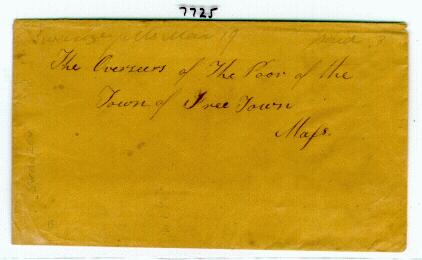 7725
Mar 19 paid 3
The Overseers of The Poor of the
Town of Free Town
Mass.